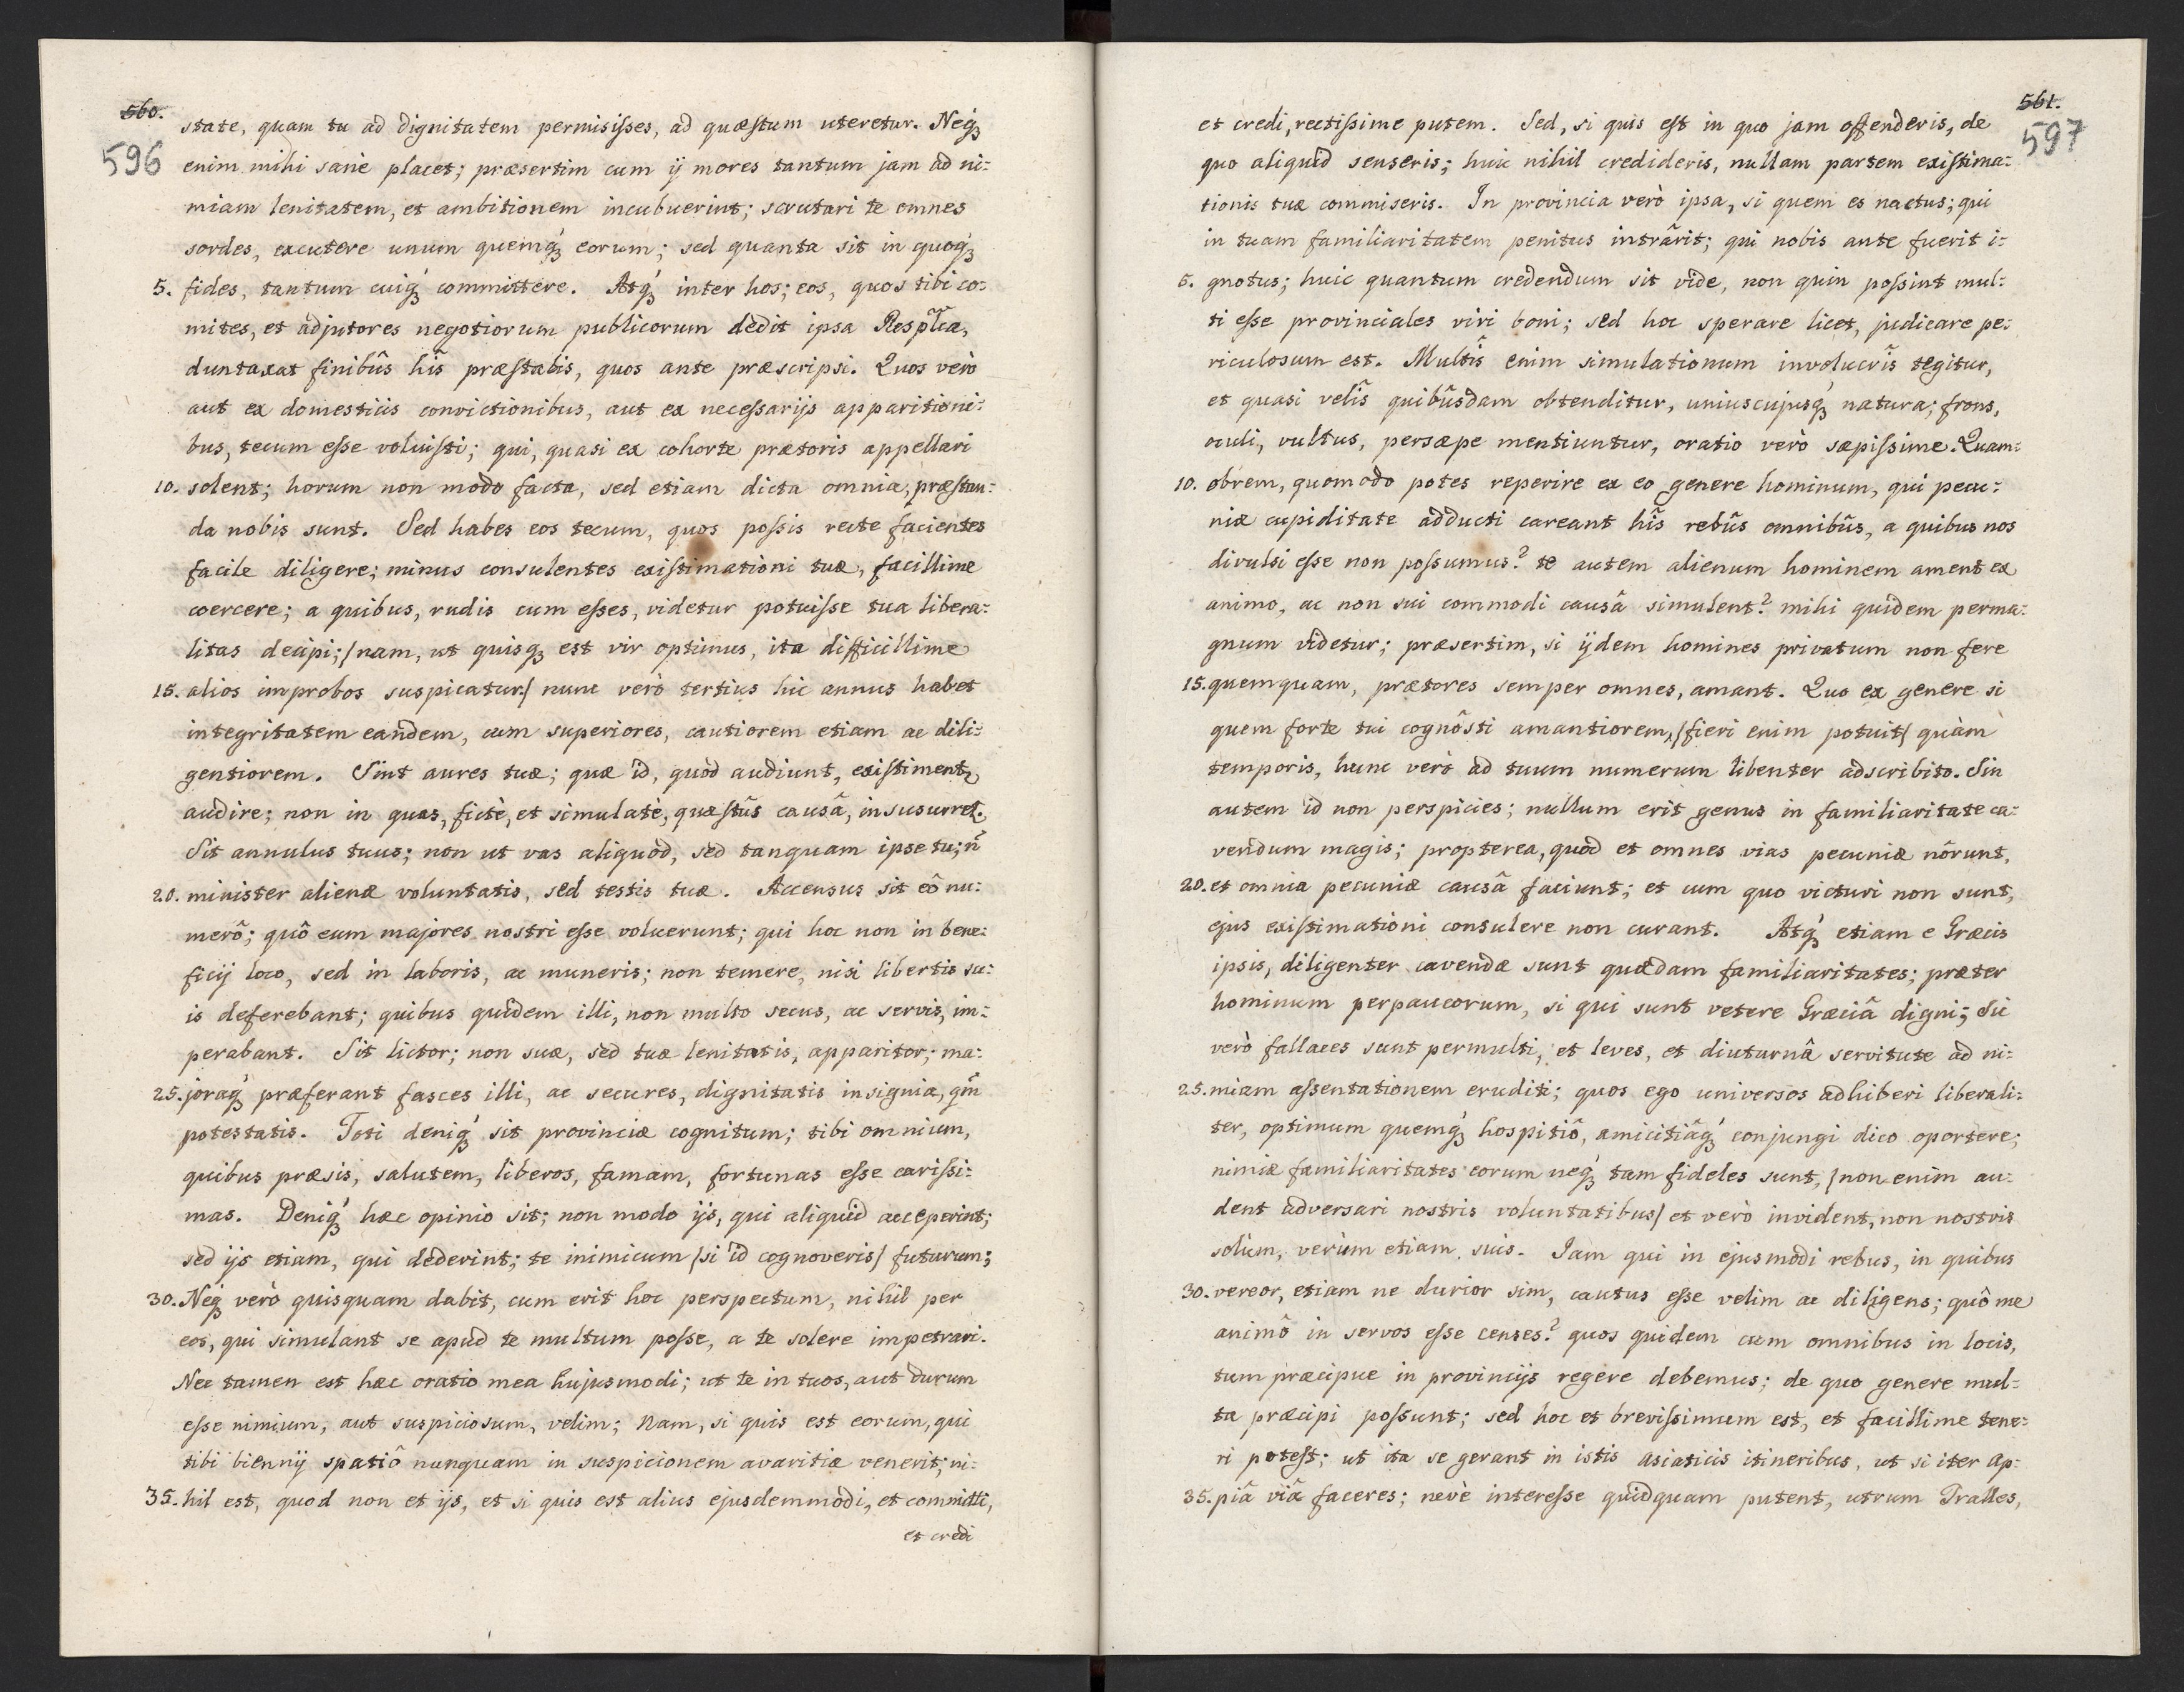 560.
596
state, quam tu ad dignitatem permisiſses, ad quæſtum uteretur. Neqꝫ
enim mihi sanè placet; præsertim cum ij mores tantum jam ad ni:
miam lenitatem, et ambitionem incubuerint; scrutari te omnes
sordes, excutere unum quemqꝫ́ eorum; sed quanta sit in quoqꝫ́
5. fides, tantum cuiqꝫ́ committere. Atqꝫ́ inter hos; eos, quos tibi co:
mites, et adjutores negotiorum publicorum dedit ipsa Respl̃ca,
duntaxat finibûs hîs præſtabis, quos ante præscripsi. Quos verò
aut ex domesticis convictionibus, aut ex neceſsarijs apparitioni:
bus, tecum eſse voluiſti; qui, quasi ex cohorte prætoris appellari
10. solent; horum non modo facta, sed etiam dicta omnia, præſtan:
da nobis sunt. Sed habes eos tecum, quos poſsis recte facientes
facile diligere; minus consulentes exiſtimationi tuæ, facillime
coercere; a quibus, rudis cum eſses, videtur potuiſse tua libera:
litas decipi; /nam, ut quisqꝫ est vir optimus, ita difficillime
15. alios improbos suspicatur/ nunc verò tertius hic annus habet
integritatem eandem, cum superiores, cautiorem etiam ac dili:
gentiorem. Sint aures tuæ; quæ id, quod audiunt, exiſtiment,
audire; non in quas, fictè, et simulatè, quæſtûs causâ, insusurret.
Sit annulus tuus; non ut vas aliquod, sed tanquam ipse tu; ñ
20. minister alienæ voluntatis, sed testis tuæ. Accensus sit eô nu:
merô; quô eum majores nostri eſse voluerunt; qui hoc non in bene:
ficij loco, sed in laboris, ac muneris; non temere, nisi libertis su:
is deferebant; quibus quidem illi, non multo secus, ac servis, im:
perabant. Sit lictor; non suæ, sed tuæ lenitatis, apparitor; ma:
25. joraqꝫ́ præferant fasces illi, ac secures, dignitatis insignia, qm̃
potestatis. Toti deniqꝫ́ sit provinciæ cognitum; tibi omnium,
quibus præsis, salutem, liberos, famam, fortunas eſse cariſsi:
mas. Deniqꝫ́ hæc opinio sit; non modo ijs, qui aliquid acceperint;
sed ijs etiam, qui dederint; te inimicum /si id cognoveris/ futurum;
30. Neqꝫ verò quisquam dabit, cum erit hoc perspectum, nihil per
eos, qui simulant se apud te multum poſse, a te solere impetrari.
Nec tamen est hæc oratio mea hujusmodi; ut te in tuos, aut durum
eſse nimium, aut suspiciosum, velim; Nam, si quis est eorum, qui
tibi biennij spatiô nunquam in suspicionem avaritiæ venerit; ni:
35. hil est, quod non et ijs, et si quis est alius ejusdemmodi, et committi,
et credi
561.
597
et credi, rectiſsime putem. Sed, si quis eſt in quo jam offenderis, de
quo aliquid senseris; huic nihil credideris, nullam partem exiſtima:
tionis tuæ commiseris. In provincia verò ipsa, si quem es nactus; qui
in tuam familiaritatem penitus intrârit; qui nobis ante fuerit i:
5. gnotus; huic quantum credendum sit vide, non quin poſsint mul:
ti eſse provinciales viri boni; sed hoc sperare licet, judicare pe:
riculosum est. Multîs enim simulationum involucrîs tegitur,
et quasi velîs quibûsdam obtenditur, uniuscujusqꝫ́ natura; frons,
oculi, vultus, persæpe mentiuntur, oratio verò sæpiſsime. Quam:
10. obrem, quomodo potes reperire ex eo genere hominum, qui pecu:
niæ cupiditate adducti careant hîs rebûs omnibûs, a quibus nos
divulsi eſse non poſsumus? te autem alienum hominem ament ex
animo, ac non sui commodi causâ simulent? mihi quidem perma:
gnum videtur; præsertim, si ijdem homines privatum non fere
15. quemquam, prætores semper omnes, amant. Quo ex genere si
quem forte tui cognôsti amantiorem, /fieri enim potuit/ quàm
temporis, hunc verò ad tuum numerum libenter adscribito. Sin
autem id non perspicies; nullum erit genus in familiaritate ca:
vendum magis; propterea, quod et omnes vias pecuniæ nôrunt,
20. et omnia pecuniæ causâ faciunt; et cum quo victuri non sunt,
ejus exiſtimationi consulere non curant. Atqꝫ́ etiam e Græcis
ipsis, diligenter cavendæ sunt quædam familiaritates; præter
hominum perpaucorum, si qui sunt vetere Græciâ digni; Sic
verò fallaces sunt permulti, et leves, et diuturnâ servitute ad ni:
25. miam aſsentationem eruditi; quos ego universos adhiberi liberali:
ter, optimum quemqꝫ́ hospitiô, amicitiâqꝫ́ conjungi dico oportere;
nimiæ familiaritates eorum neqꝫ́ tam fideles sunt, /non enim au:
dent adversari nostris voluntatibus/ et verò invident, non nostris
solùm, verùm etiam suis. Jam qui in ejusmodi rebus, in quibus
30. vereor, etiam ne durior sim, cautus eſse velim ac diligens; quô me
animô in servos eſse censes? quos quidem cum omnibus in locis,
tum præcipue in provincijs regere debemus; de quo genere mul:
ta præcipi poſsunt; sed hoc et breviſsimum est, et facillime tene:
ri poteſt; ut ita se gerant in istis asiaticis itineribus, ut si iter Ap:
35. piâ viâ faceres; nevè intereſse quidquam putent, utrum Tralles,